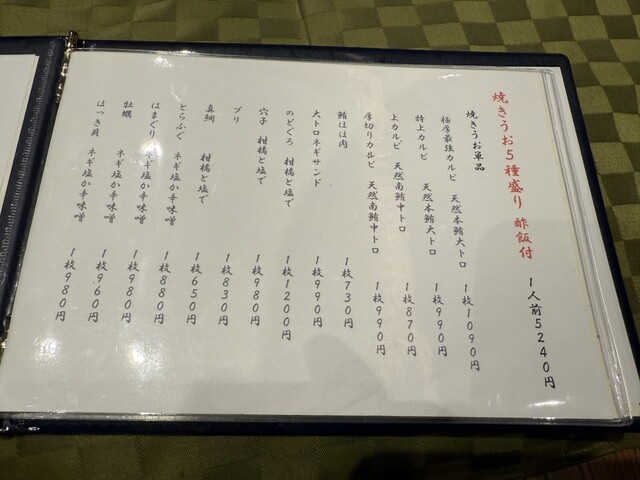 焼きうお5種盛り 酢飯付 1人前5240円
焼きうお単品
極厚最強カルビ 天然本鮪大トロ 1枚1090円
特上カルビ 天然本鮪大トロ 1枚990円
上カルビ 天然南鮪中トロ 1枚870円
厚切りカルビ 天然南鮪中トロ 1枚990円
鮪ほほ肉 1枚730円
大トロネギサンド 1枚990円
のどぐろ 柑橘と塩で 1枚1200円
穴子 柑橘と塩で 1枚980円
ブリ 1枚830円
真鯛 柑橘と塩で 1枚650円
とらふぐ ネギ塩か辛味噌 1枚880円
はまぐり ネギ塩か辛味噌 1枚980円
牡蠣 ネギ塩か辛味噌 1枚960円
ほっき貝 ネギ塩か辛味噌 1枚980円